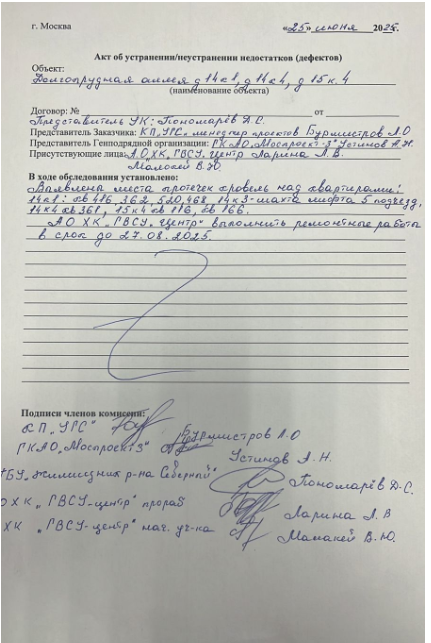 г. Москва «25» июня 2025г.
Акт об устранении/неустранении недостатков (дефектов)
Объект:
Долгопрудная аллея д 14к1, д 14к4, д 15к.4
(наименование объекта)
Договор: № от
Представитель УК: Пономарёв Д.С.
Представитель Заказчика: КП "УГС", менеджер проектов Бурмистров Л.О
Представитель Генподрядной организации: ГКАО "Моспроект-3" Устинов А.Н.
Присутствующие лица: АО ХК "ГВСУ" Центр Ларина Л.В.
В.Ю.
В ходе обследования установлено:
Выявлена места протечек кровель над квартирами:
14к1: кв 416, 362, 520, 468, 14к3-шахта лифта 5 подъезд,
14к4 кв 361, 15к4 кв 116, кв 166.
АО ХК "ГВСУ "Центр" выполнить ремонтные работы
в срок до 27.08.2025.
Подписи членов комиссии:
КП "УГС" Бурмистров Л.О
ГКАО "Моспроект3" Устинов А.Н.
ГБУ "Жилищник р-на Северный" Пономарёв Д.С.
ОХК "ГВСУ-центр" прораб Ларина Л.В
ХК "ГВСУ-центр" нач. уч-ка В.Ю.